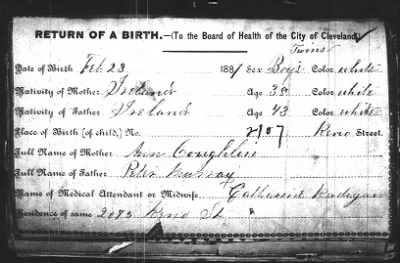 RETURN OF A BIRTH.—(To the Board of Health of the City of Cleveland)
Twins
Date of Birth Feb 23 1881 Sex Boys Color white
Nativity of Mother Ireland Age 35 Color white
Nativity of Father Ireland Age 43 Color white
Place of Birth (of child,) No. 2107 Keno Street.
Full Name of Mother Ann Coughlin
Full Name of Father Peter Murray
Name of Medical Attendant or Midwife Catharine
Residence of same 2075 Keno St